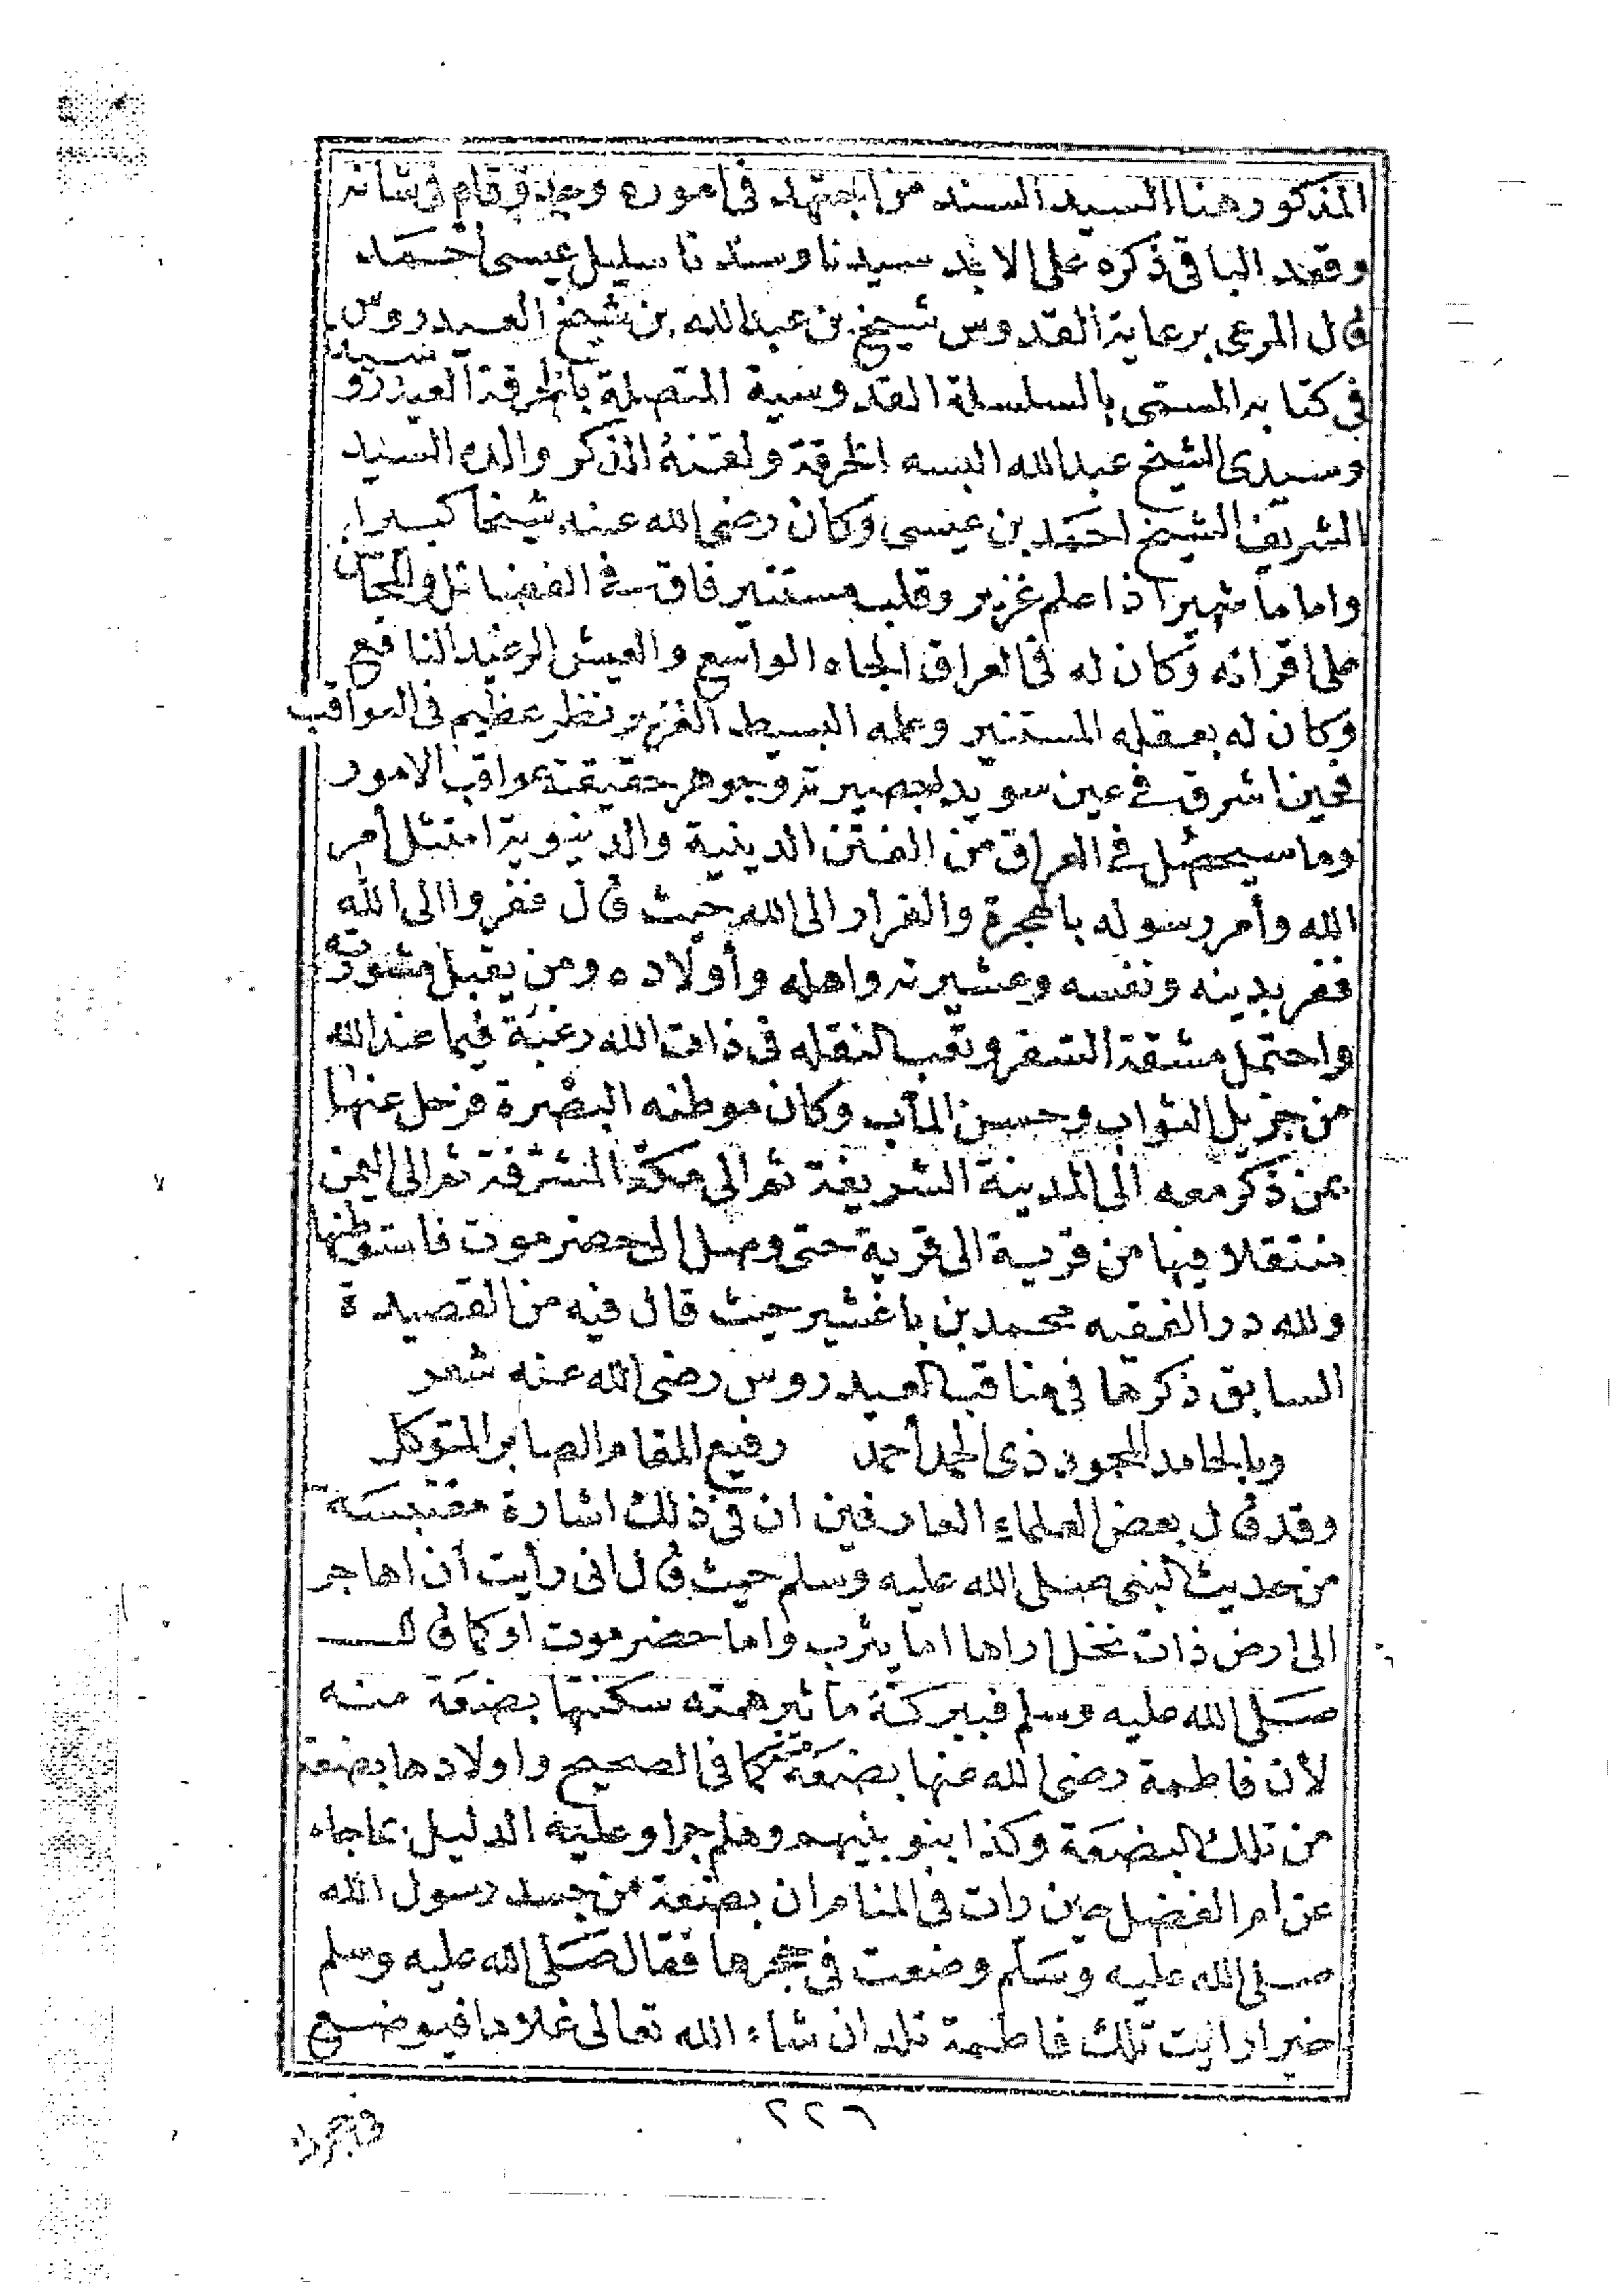 المذكور هنا السيد السند من اجتهد في اموره وجد وقام في شانه
وقعد الباقي ذكره على الابد سيدنا وسندنا سليل عيسى احمد
قال المرعي برعاية القدوس شيخ بن عبدالله بن شيخ العيدروس
في كتابه المسمى بالسلسلة القدوسية المتصلة بالخرقة العيدروسية
وسيدى الشيخ عبدالله البسه الخرقة ولقنه الذكر والده السيد
الشريف الشيخ احمد بن عيسى وكان رضى الله عنه شيخا كبيرا
واماما شهيرا ذا علم غزير وقلب مستنير فاق في الفضائل والمحاسن
على اقرانه وكان له في العراق الجاه الواسع والعيش الرغيد النافع
وكان له بعقله المستنير وعلمه البسيط الغزير نظر عظيم في العواقب
فحين اشرق في عين سويد بصيرته وجوهر حقيقة عواقب الامور
وما سيحصل في العراق من الفتن الدينية والدنيوية امتثل أمر
الله وأمر رسوله بالهجرة والفرار الى الله حيث قال ففروا الى الله
ففر بدينه ونفسه وعشيرته واهله وأولاده ومن يقبل مشورته
واحتمل مشقة السفر وتعب النقله في ذات الله رغبة فيما عند الله
من جزيل الثواب وحسن المأب وكان موطنه البصرة فرحل عنها
بمن ذكر معه الى المدينة الشريفة ثم الى مكة المشرفة ثم الى اليمن
متنقلا فيها من قرية الى قرية حتى وصل الى حضرموت فاستوطنها
ولله در الفقيه محمد بن باعشير حيث قال فيه من القصيدة
السابق ذكرها في مناقب العيدروس رضى الله عنه شعر
وبالحامد المحمود ذى الحمد أحمد رفيع المقام الصابر المتوكل
وقد قال بعض العلماء العارفين ان في ذلك اشارة مقتبسة
من حديث النبى صلى الله عليه وسلم حيث قال انى رأيت أن اهاجر
الى ارض ذات نخل اراها اما يثرب واما حضرموت او كما قال
صلى الله عليه وسلم فببركة مأثر همته سكنتها بضعة منه
لأن فاطمة رضى الله عنها بضعة منه كما في الصحيح واولادها بضعة
من تلك البضعة وكذا بنو بنيهم وهلم جرا وعليه الدليل بما جاء
عن ام الفضل حين رات في المنام ان بضعة من جسد رسول الله
صلى الله عليه وسلم وضعت في حجرها فقال صلى الله عليه وسلم
خيرا رأيت تلك فاطمة تلد ان شاء الله تعالى غلاما فيوضع
٢٢٦
في حجرك